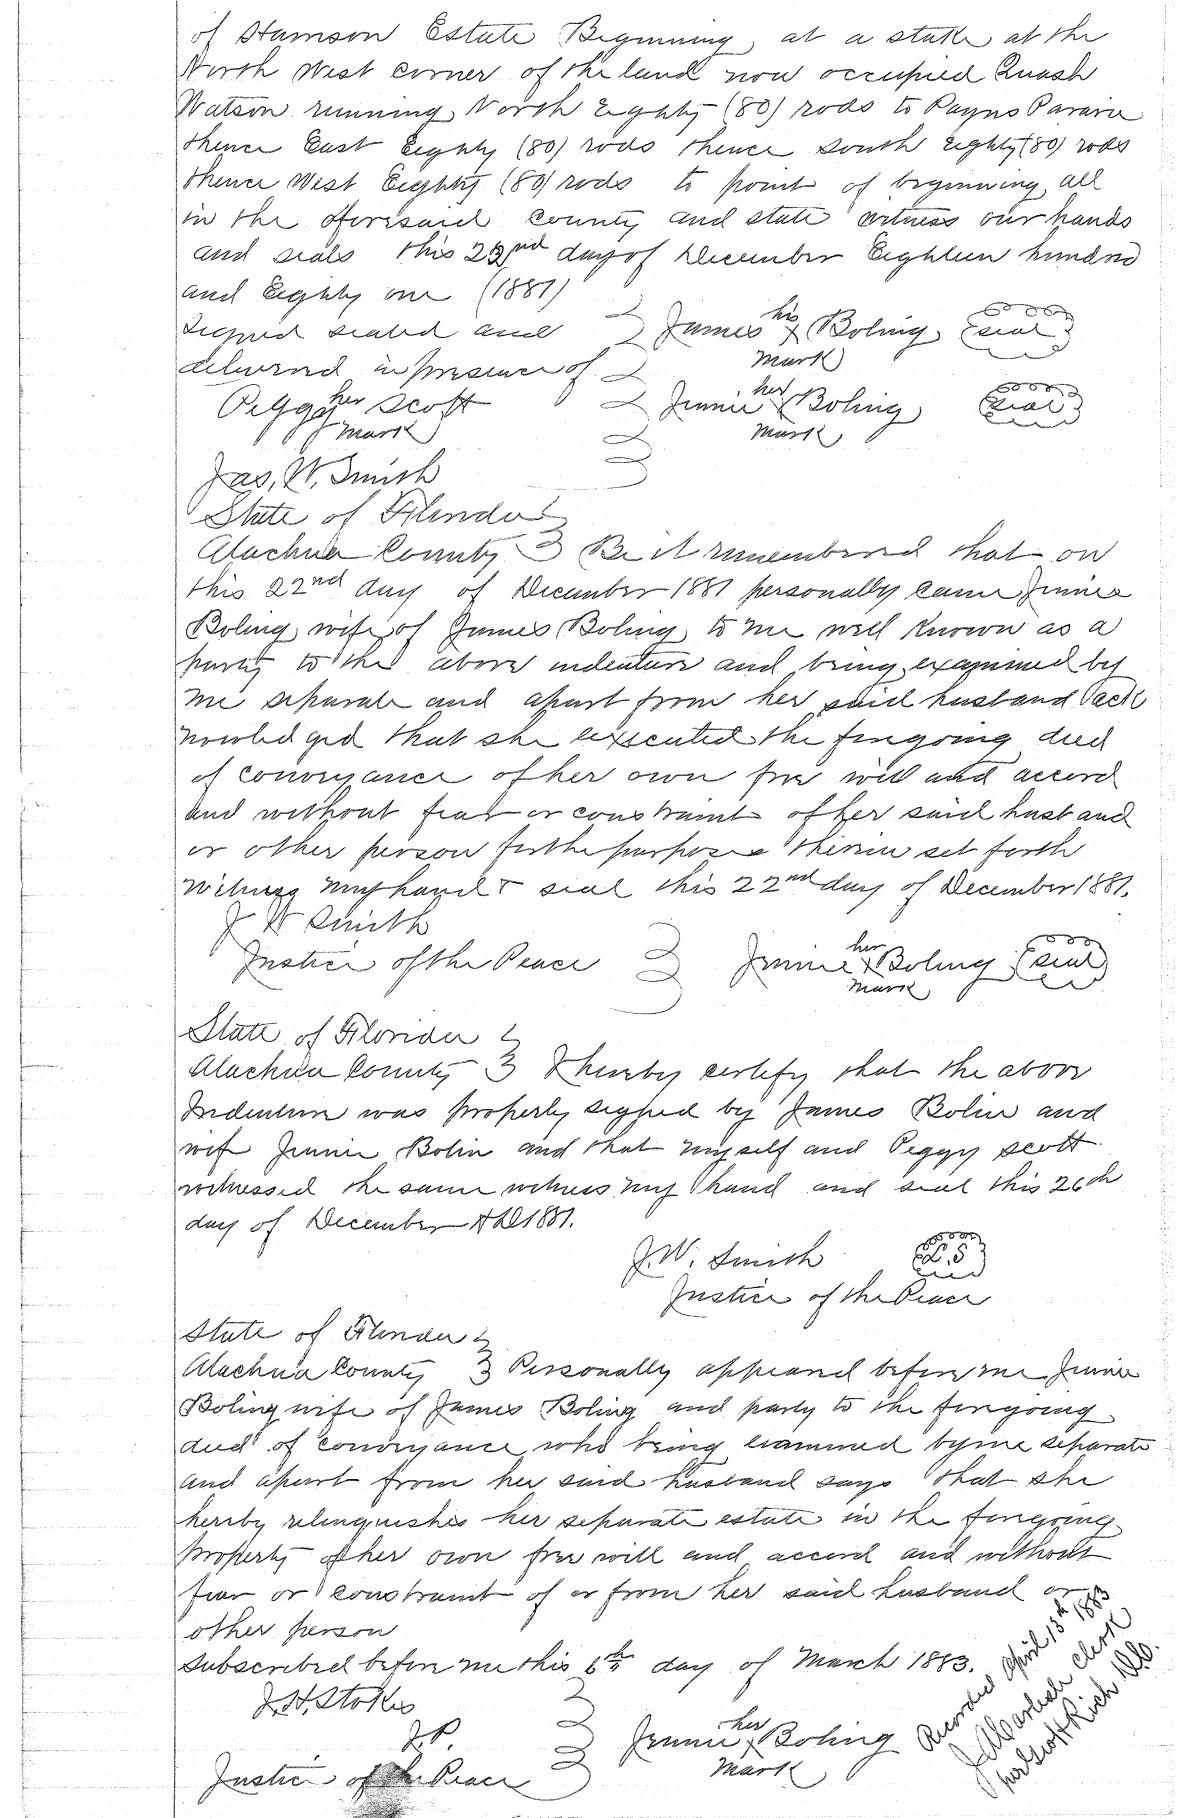 of Hamson Estate Beginning at a stake at the
North West corner of the land now occupied Quash
Watson running North Eighty (80) rods to Payns Parara
thence East Eighty (80) rods thence south eighty (80) rods
thence West Eighty (80) rods to point of beginning all
in the aforesaid county and state witness our hands
and seals this 22nd day of December Eighteen hundred
and Eighty one (1881)
Signed sealed and
his
James x Boling (seal)
mark
delivered in presence of
her
Jennie x Boling (seal)
mark
her
Peggy Scott
mark
Jas, W, Smith
State of Florida
Alachua County } Be it remembered that on
this 22nd day of December 1881 personally came Jennie
Boling wife of James Boling to me well known as a
party to the above indenture and being examined by
me separate and apart from her said husband ack
nowledged that she executed the foregoing deed
of conveyance of her own free will and accord
and without fear or constraint of her said husband
or other person for the purposes therein set forth
Witness my hand & seal this 22nd day of December 1881.
J W Smith
Justice of the Peace
her
Jennie x Boling (seal)
mark
State of Florida
Alachua County } I hereby certify that the above
Indenture was properly signed by James Bolin and
wife Jennie Bolin and that myself and Peggy Scott
witnessed the same witness my hand and seal this 26th
day of December AD 1881.
J. W. Smith (L.S)
Justice of the Peace
State of Florida
Alachua County } Personally appeared before me Jennie
Boling wife of James Boling and party to the foregoing
deed of conveyance who being examined by me separate
and apart from her said husband says that she
hereby relinquishes her separate estate in the foregoing
property of her own free will and accord and without
fear or constraint of or from her said husband or
other person
Subscribed before me this 6th day of March 1883.
J. H. Stokes
J.P.
Justice of the Peace
her
Jennie x Boling
mark
Recorded April 13th 1883
J A Carlisle Clerk
per Scott Rich D.C.